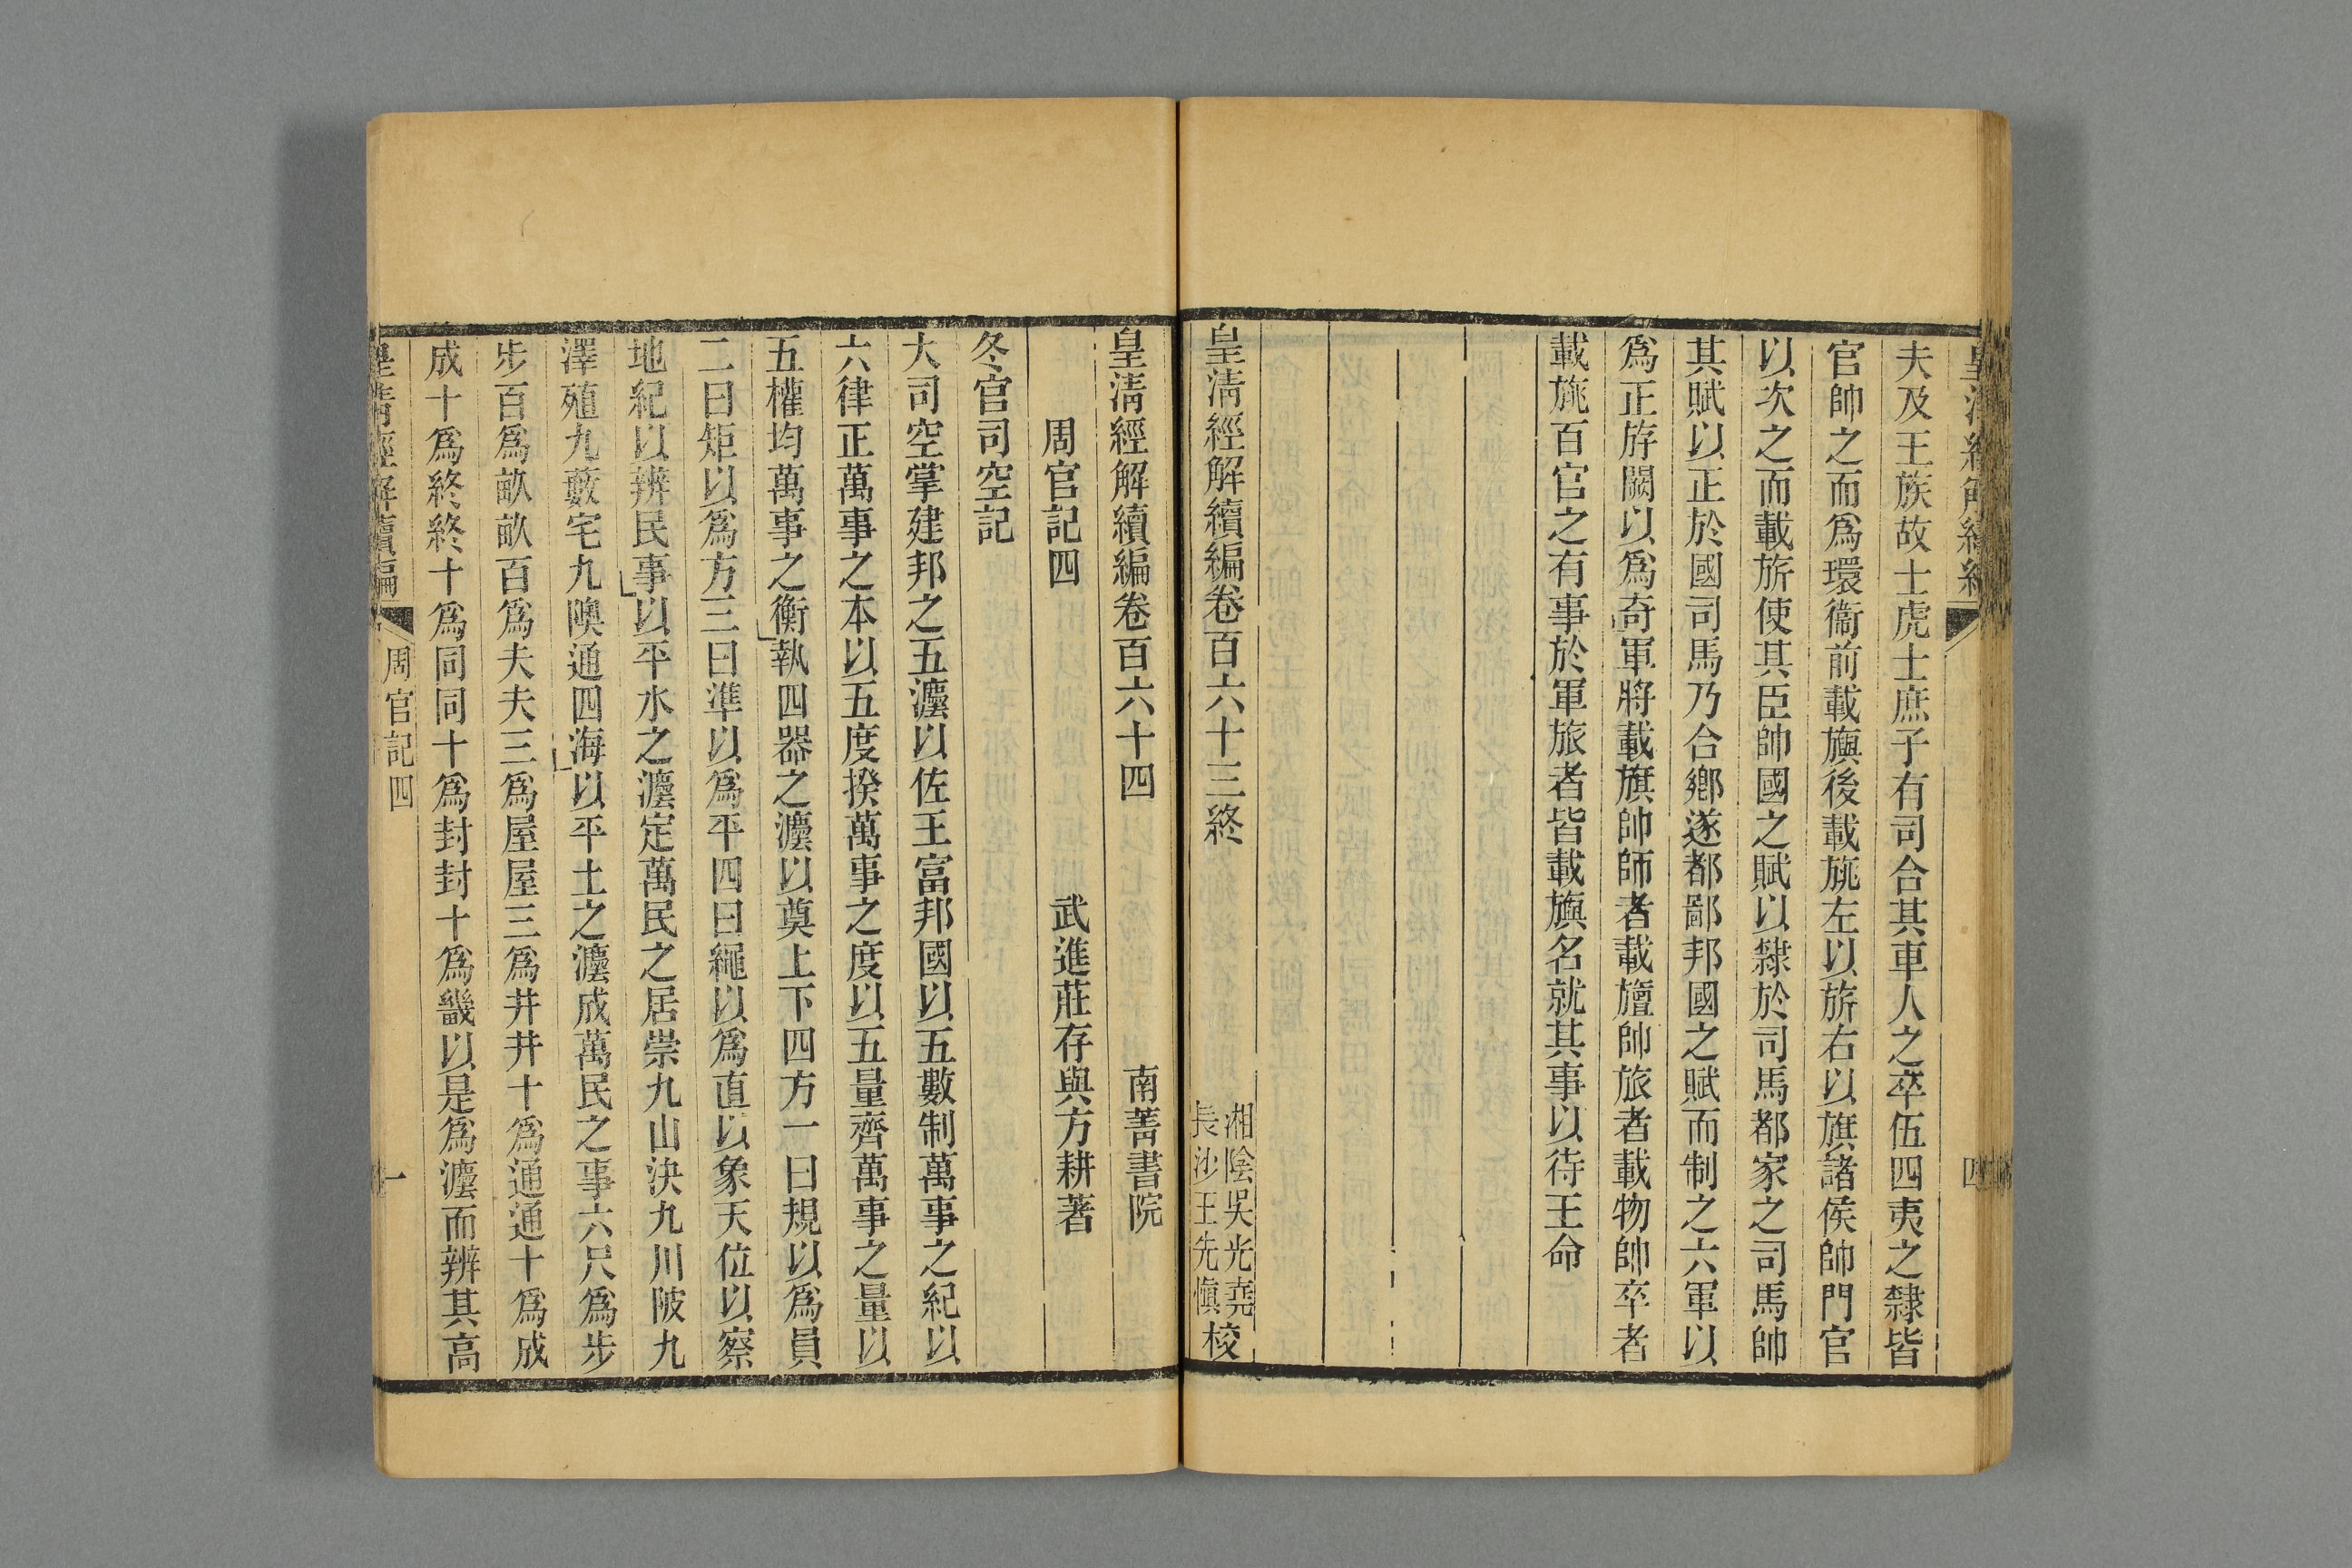 夫及王族故士虎士庶子有司合其車人之卒伍四夷之隸皆
官帥之而爲環衞前載旟後載旐左以旂右以旗諸侯帥門官
以次之而載旂使其臣帥國之賦以隸於司馬都家之司馬帥
其賦以正於國司馬乃合鄕遂都鄙邦國之賦而制之六軍以
爲正斿闕以爲奇軍將載旗帥師者載旜帥旅者載物帥卒者
載旐百官之有事於軍旅者皆載旟名就其事以待王命
皇淸經解續編卷百六十三終
湘陰吳光堯
長沙王先愼校
皇淸經解續編卷百六十四
南菁書院
周官記四
武進莊存與方耕著
冬官司空記
大司空掌建邦之五灋以佐王富邦國以五數制萬事之紀以
六律正萬事之本以五度揆萬事之度以五量齊萬事之量以
五權均萬事之衡執四器之灋以奠上下四方一曰規以爲員
二曰矩以爲方三曰準以爲平四曰繩以爲直以象天位以察
地紀以辨民事以平水之灋定萬民之居崇九山決九川陂九
澤殖九藪宅九隩通四海以平土之灋成萬民之事六尺爲步
步百爲畝畝百爲夫夫三爲屋屋三爲井井十爲通通十爲成
成十爲終終十爲同同十爲封封十爲畿以是爲灋而辨其高
皇清經解續編
周官記四
一